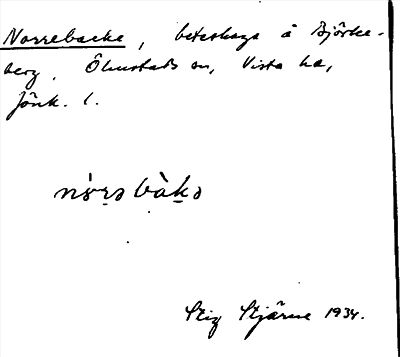 Norrebacke, beteshage å Björke-
berg, Ölmstads sn, Vista hd,
Jönk. l.
nór̤ə bàḵə
Stig Stjärne 1934.